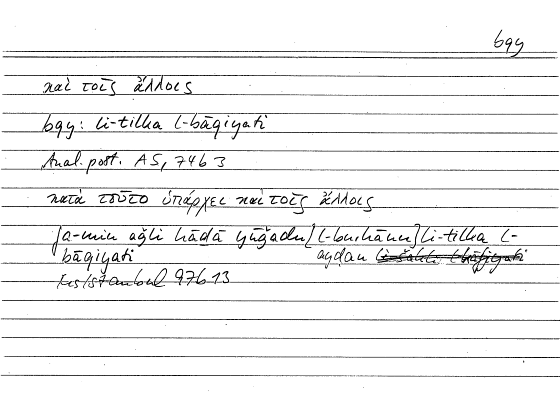 bqy
καὶ τοῖς ἄλλοις
bqy: li-tilka l-bāqiyati
Anal. post. A5, 74b 3
κατὰ τοῦτο ὑπάρχει καὶ τοῖς ἄλλοις
fa-min ağli hāḏā yūğadu [l-burhānu] li-tilka l-
bāqiyati ayḍan
Ms Istanbul 97b13